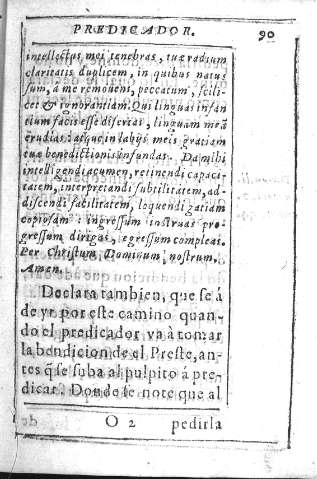 PREDICADOR. 90
intellectus mei tenebras, tuæ radium
claritatis duplicem, in quibus natus
sum, a me removens, peccatum, scili-
cet & ignorantiam. Qui linguas infan
tium facis esse disertas, linguam meã
erudias: atque in labijs meis gratiam
tuæ benedictionis infundas. Da mihi
intelligendi acumen, retinendi capaci-
tatem, interpretandi subtilitatem, ad-
discendi facilitatem, loquendi gratiam
copiosam: ingressum instruas pro-
gressum dirigas, egressum compleas.
Per Christum Dominum, nostrum.
Amen.
Declara tambien, que se á
de yr por este camino quan-
do el predicador va à tomar
la bendicion de el Preste, an-
tes q̃ se suba al pulpito á pre-
dicar. Donde se note que al
O 2 pedirla